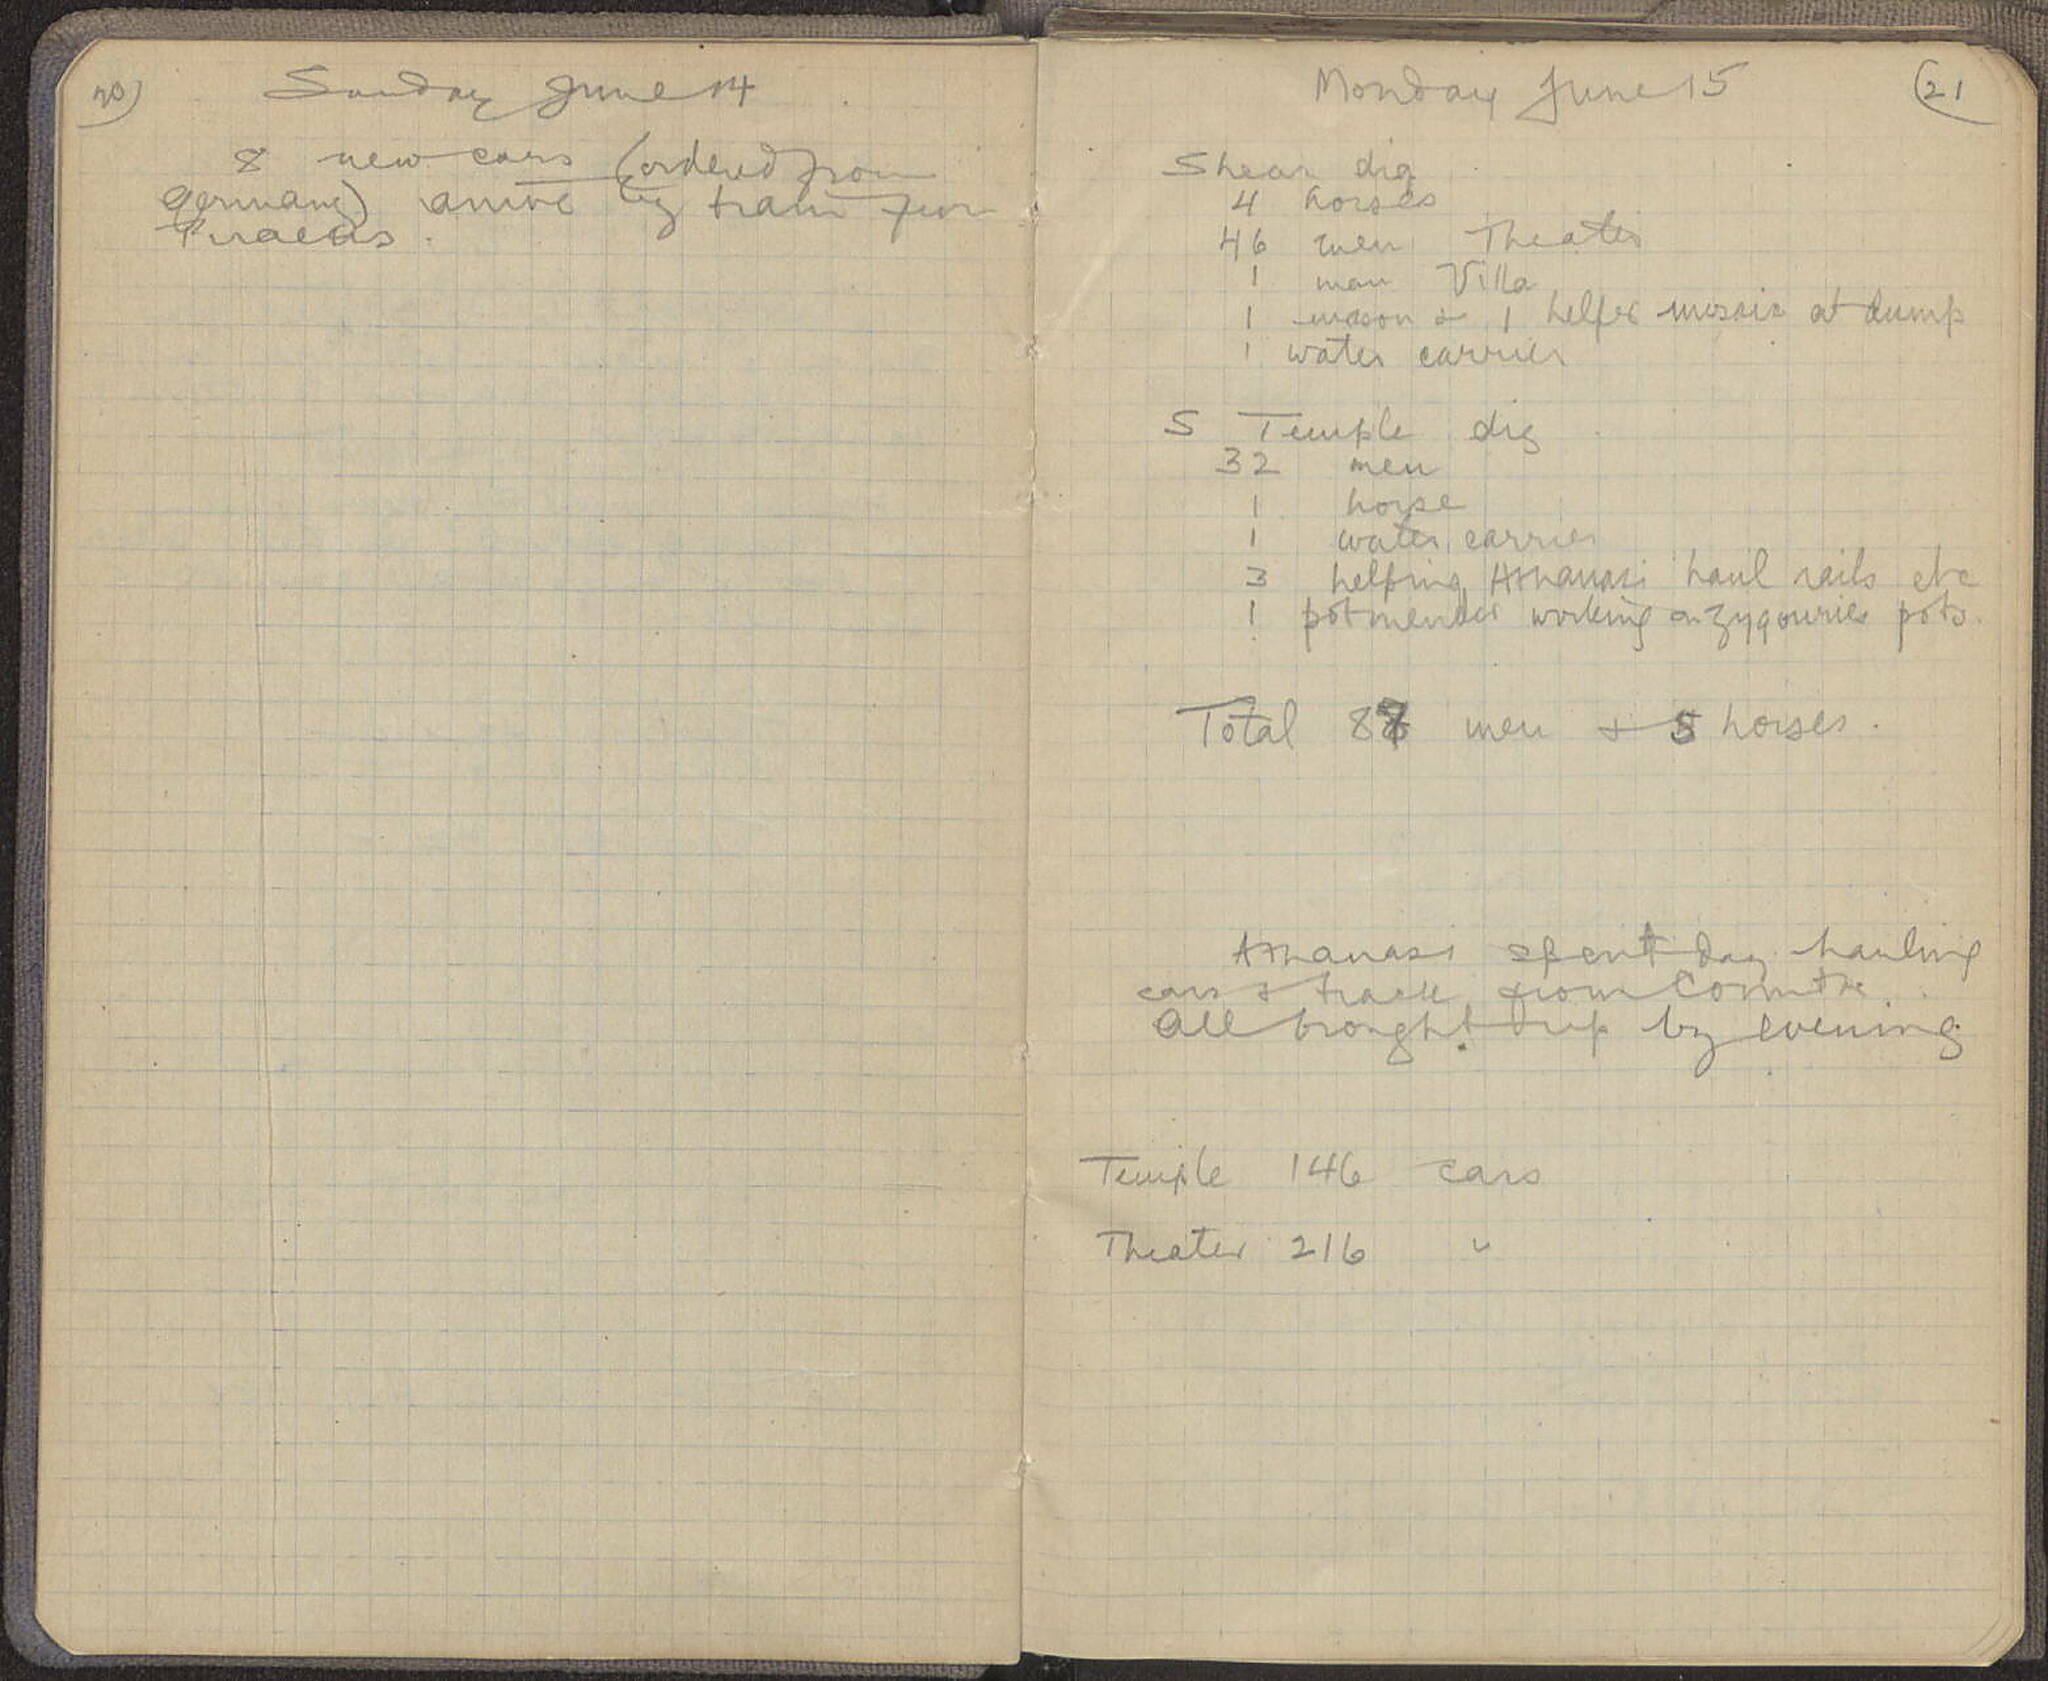 20)
Sunday June 14
8 new cars (ordered from
Germany) arrive by train from
Piraeus.
Monday June 15
(21
Shear dig
4 horses
46 men Theater
1 man Villa
1 mason & 1 helper mosaic at dump
1 water carrier
S Temple dig
32 men
1 horse
1 water carrier
3 helping Athanasi haul rails etc
1 potmender working on Zygouries pots.
Total 87 men & 5 horses.
Athanasi spent day hauling
cars & track from Corinth.
All brought up by evening
Temple 146 cars
Theater 216 "